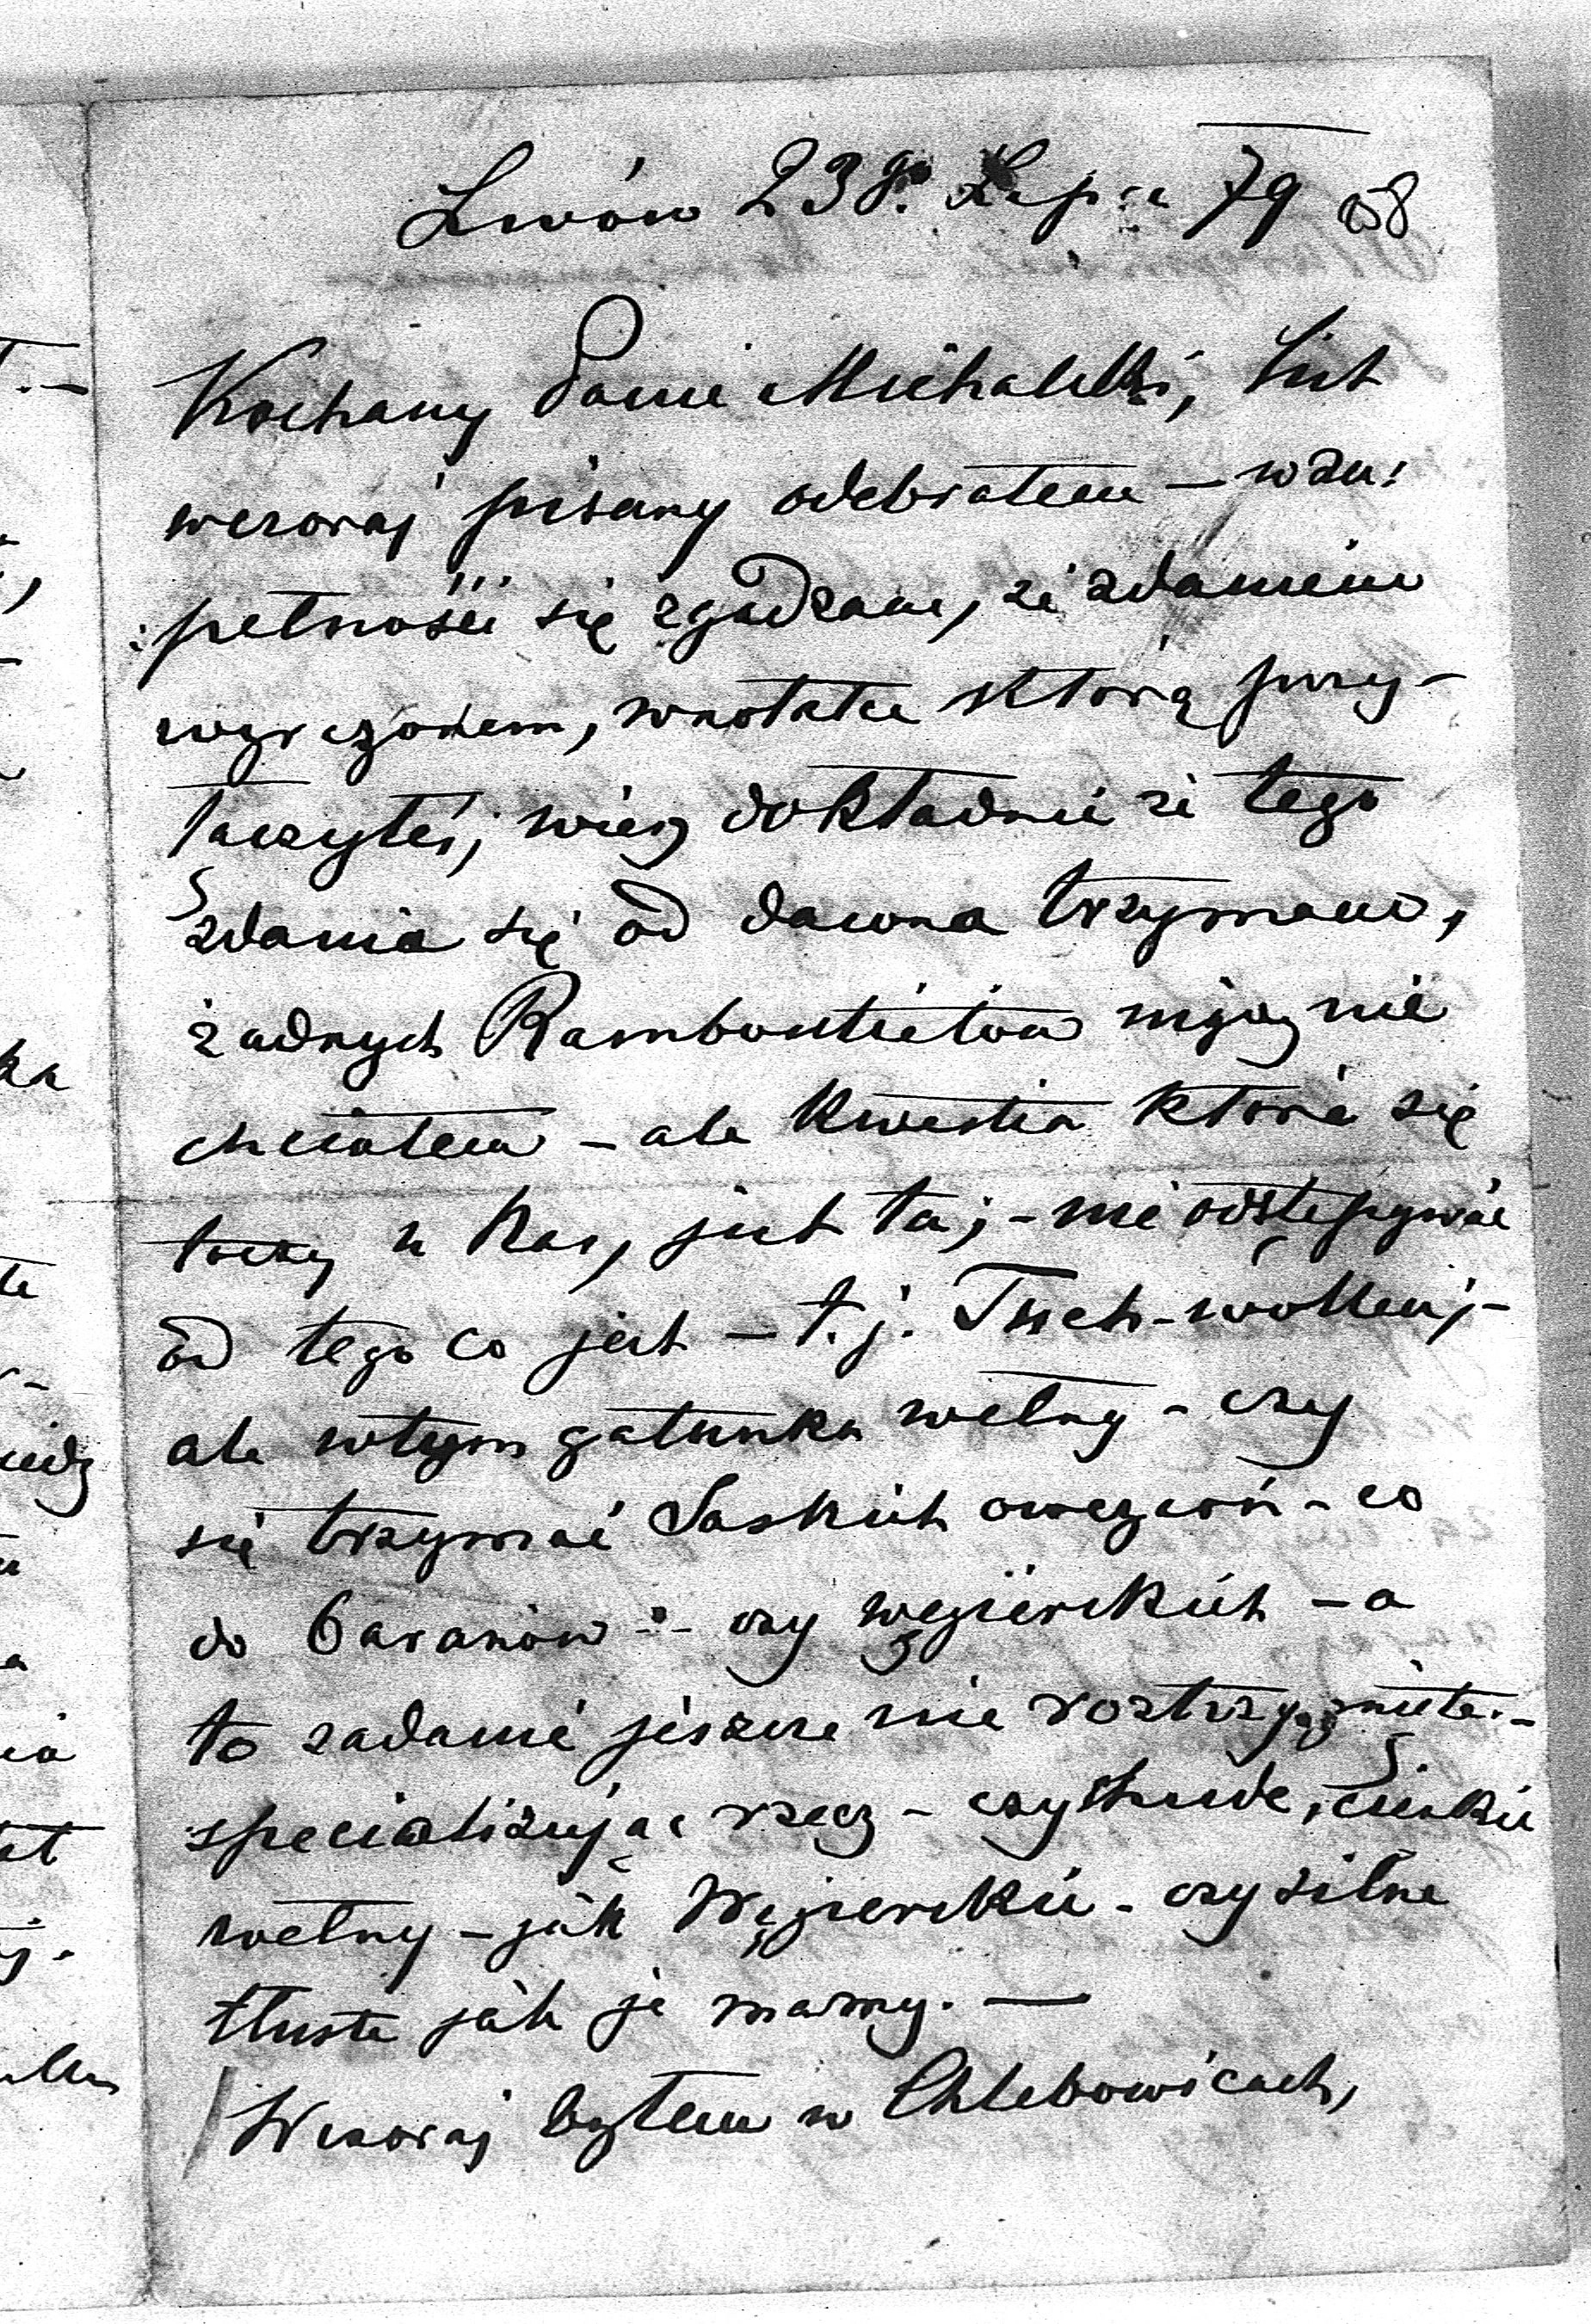 Lwów 23go Lipca 79 158
Kochany Panie Michalski, list
wczoraj pisany odebrałem – w zu:
:pełności się zgadzam, ze zdaniem
wyrażonem, w notatce którą przy-
taczyłeś; więc dokładnie że tego
zdania się od dawna trzymam,
żadnych Rambouilletów nigdy nie
chciałem – ale kwestia która się
toczy u nas, jest ta; – nie odstępywać
od tego co jest – t. j. Tuch-wolle; –
ale w tym gatunku wełny – czy
się trzymać Saskich owczarń – co
do baranów – czy węgierskich – a
to zadanie jeszcze nie roztrzygnięte. –
specializując rzecz – czy chude, cienkie
wełny – jak Węgierskie – czy silne
tłuste jak je mamy. —
Wczoraj byłem w Chlebowicach,